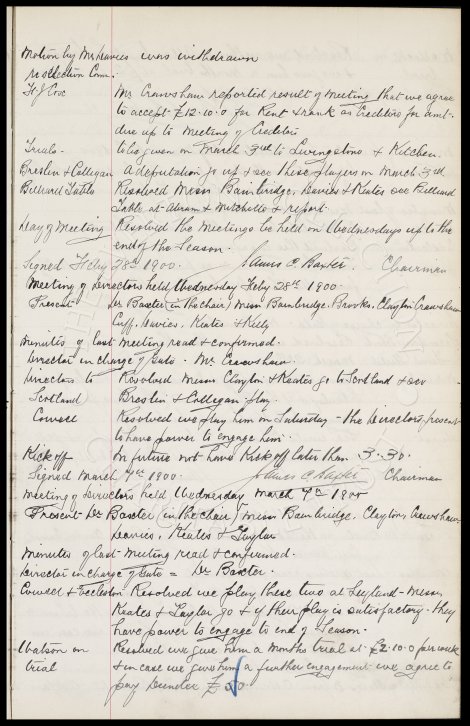 Motion by Mr Davies was withdrawn
re Selection Com.
H J Cox Mr Crawshaw reported result of Meeting that we agree
to accept £12.10.0 for Rent & rank as Creditors for amt
due up to Meeting of Creditors
Trials to be given on March 3rd to Livingstone & Kitchen
Breslin & Colligan A deputation go up & see these players on March 3rd
Billiard Table Resolved Messrs Bainbridge, Davies & Keates see Billiard
Table at & Mitchells & report.
Day of Meeting Resolved the Meetings be held on Wednesdays up to the
end of the Season.
Signed Feby 28th 1900. James C. Baxter. Chairman
Meeting of Directors held, Wednesday Feby 28th 1900.
Present Dr Baxter (in the chair) Messrs Bainbridge, Brooks, Clayton, Crawshaw
Cuff, Davies, Keates & Kelly
Minutes of last meeting read & confirmed.
Director in charge of Gate. Mr Crawshaw.
Directors to Resolved Messrs Clayton & Keates go to Scotland & see
Scotland Breslin & Colligan play.
Cowell Resolved we play him on Saturday - the Directors present
to have power to engage him.
Kick off In future not have Kick off later than 3.30.
Signed March 7th 1900. James C Baxter Chairman
Meeting of Directors held Wednesday March 7th 1900
Present Dr Baxter (in the chair) Messrs Bainbridge, Clayton, Crawshaw
Davies, Keates & Taylor
Minutes of last Meeting read & confirmed.
Director in charge of Gate = Dr Baxter.
Cowell & Eccleston Resolved we play these two at Leyland - Messrs
Keates & Taylor go & if their play is satisfactory they
have power to engage to end of Season.
Watson on Resolved we give him a months trial at £2.10.0 per week
trial & in case we give him a further engagement we agree to
pay Dundee £50